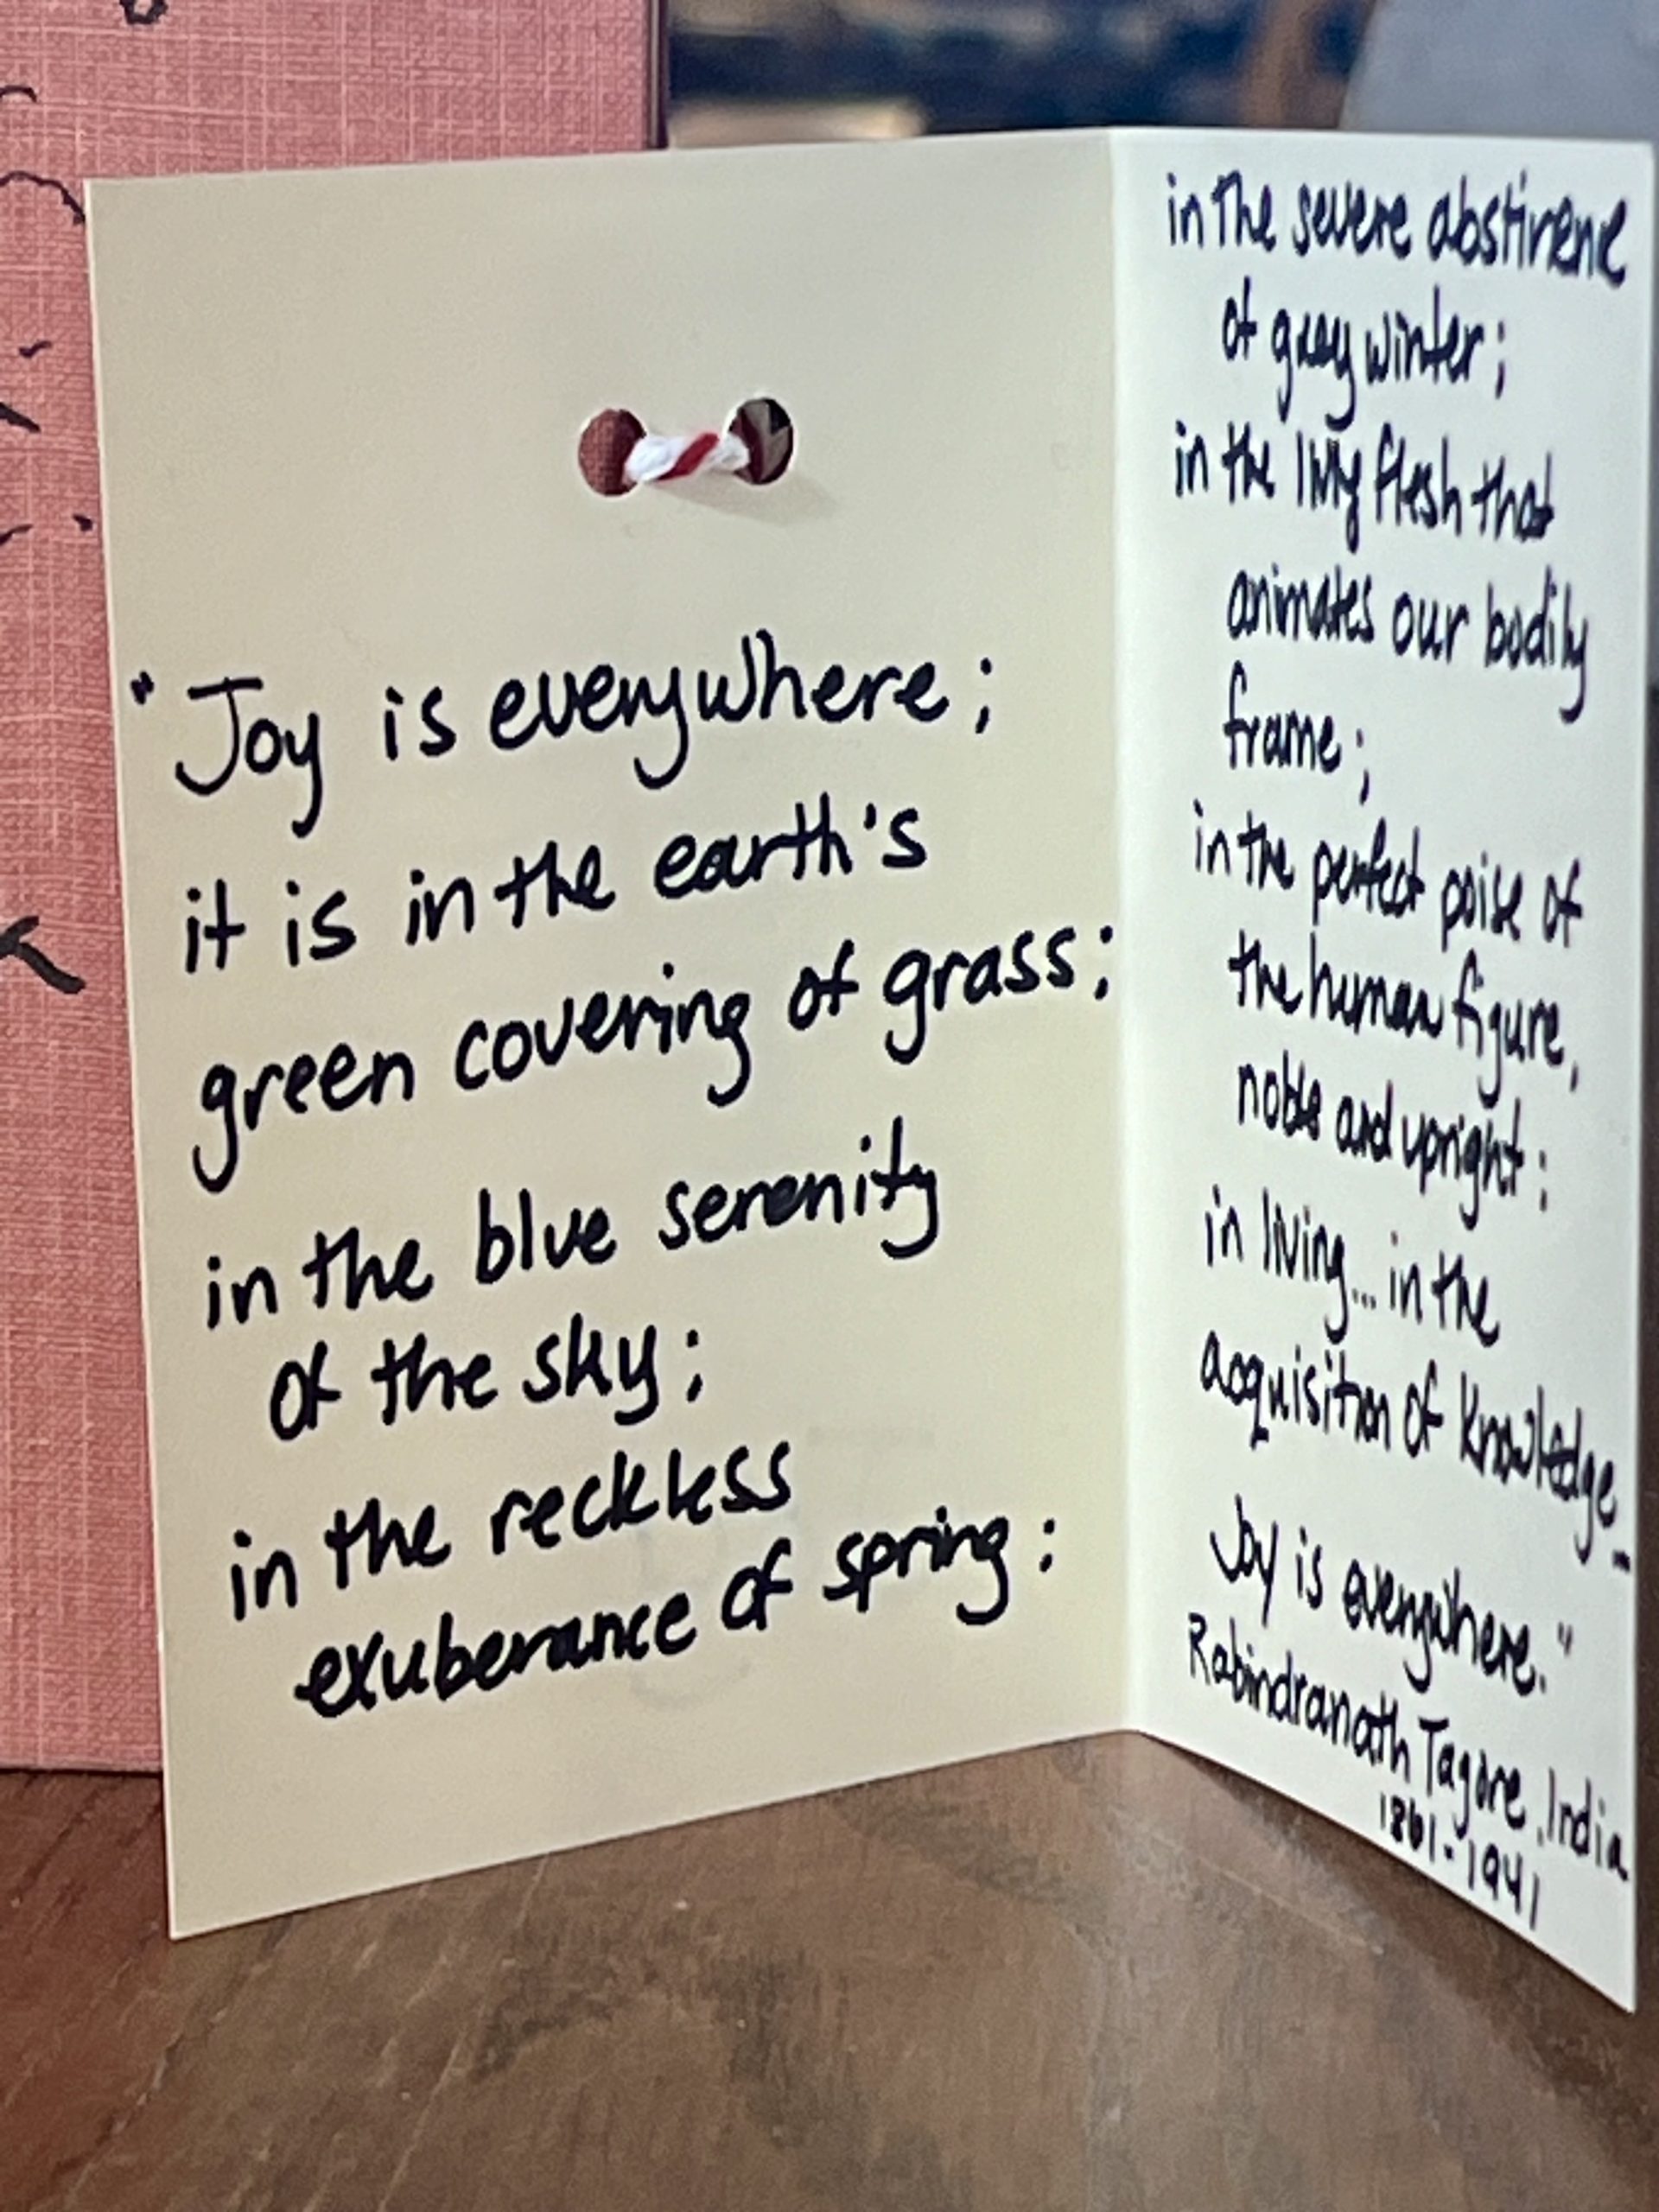 "Joy is everywhere;
it is in the earth's
green covering of grass;
in the blue serenity
of the sky;
in the reckless
exuberance of spring:
in the severe abstinence
of gray winter;
in the living flesh that
animates our bodily
frame;
in the perfect poise of
the human figure,
noble and upright;
in living... in the
acquisition of knowledge_
Joy is everywhere."
Rabindranath Tagore, India
1861-1941